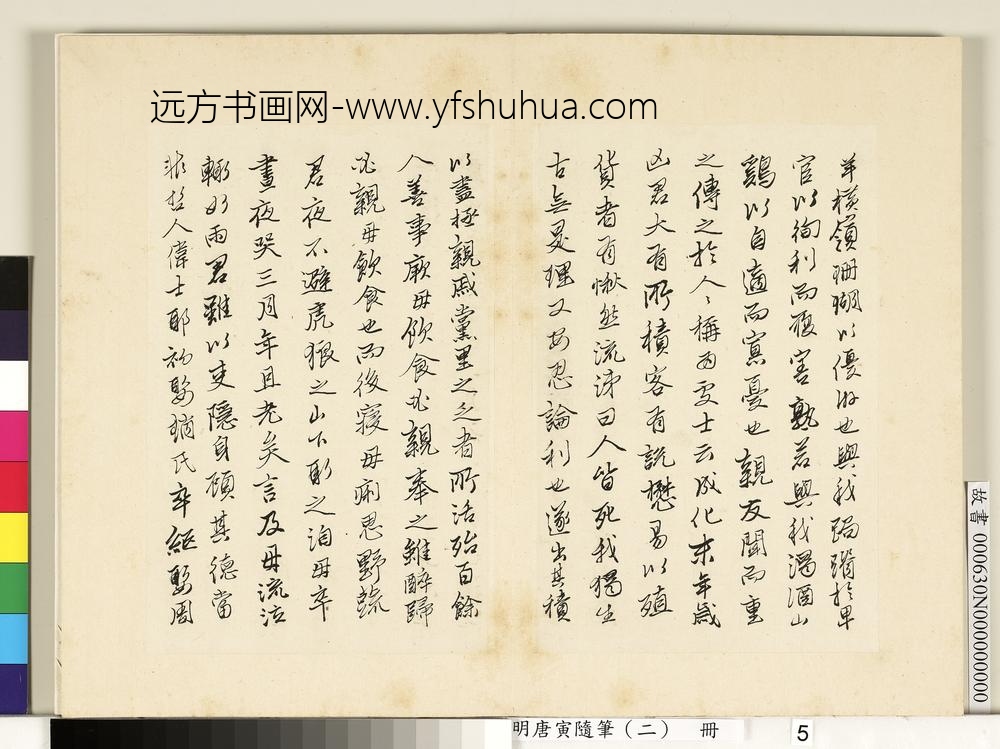 远方书画网-www.yfshuhua.com
羊橫嶺珊瑚以優游也與我跼蹐於卑
官以徇利而罹害孰若與我濁酒山
鷄以自適而寡憂也親友聞而重
之傳之於人人稱為處士云成化末年歲
凶君大有所積客有說懋易以殖
貨者君愀然流涕曰人皆死我獨生
古無是理又安忍論利也遂出其積
以盡拯親戚黨里之乏者所活殆百餘
人善事厥母飲食必親奉之雖醉歸
必親母飲食也而後寢母痢思野蔬
君夜不避虎狼之山下取之洎母卒
晝夜哭三月年且老矣言及母流泣
輒如雨君雖以吏隱身顧其德當
非哲人偉士耶初娶趙氏卒繼娶周
故書 000630N000000000
明唐寅隨筆（二） 冊
5